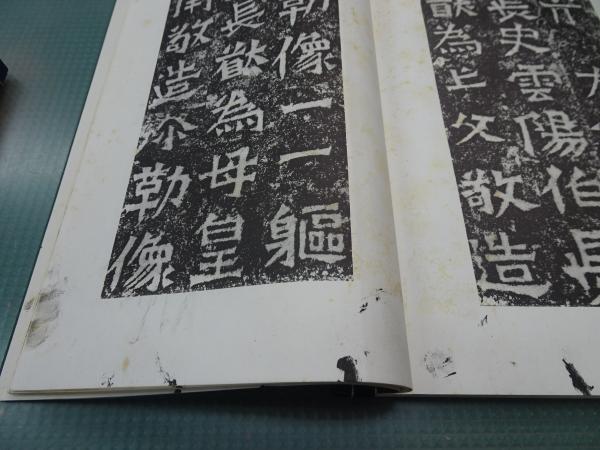 長史雲陽伯長
猷為亡父敬造
勒像一一軀
長猷為母皇
敬造弥勒像